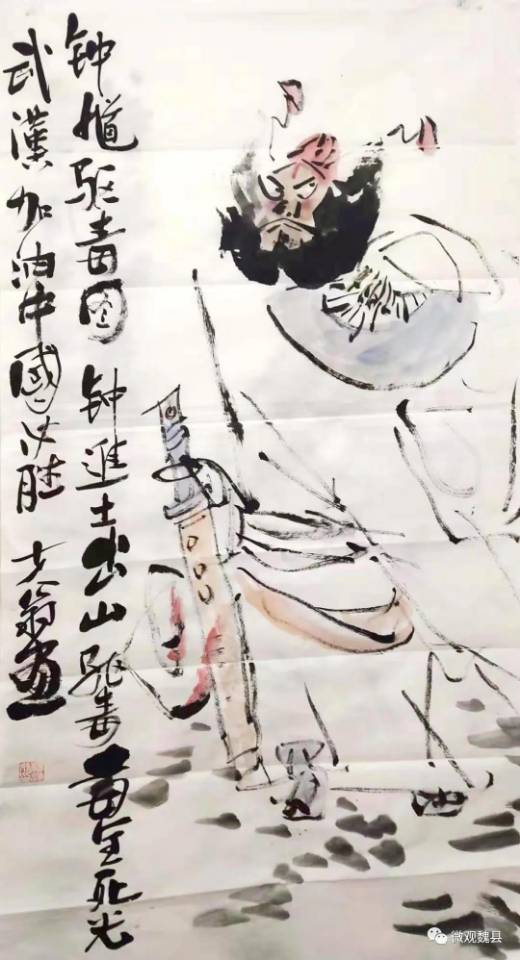 钟馗驱毒图 钟進士出山驱毒毒全死光
武漢加油中國必胜 大翁画
微观魏县